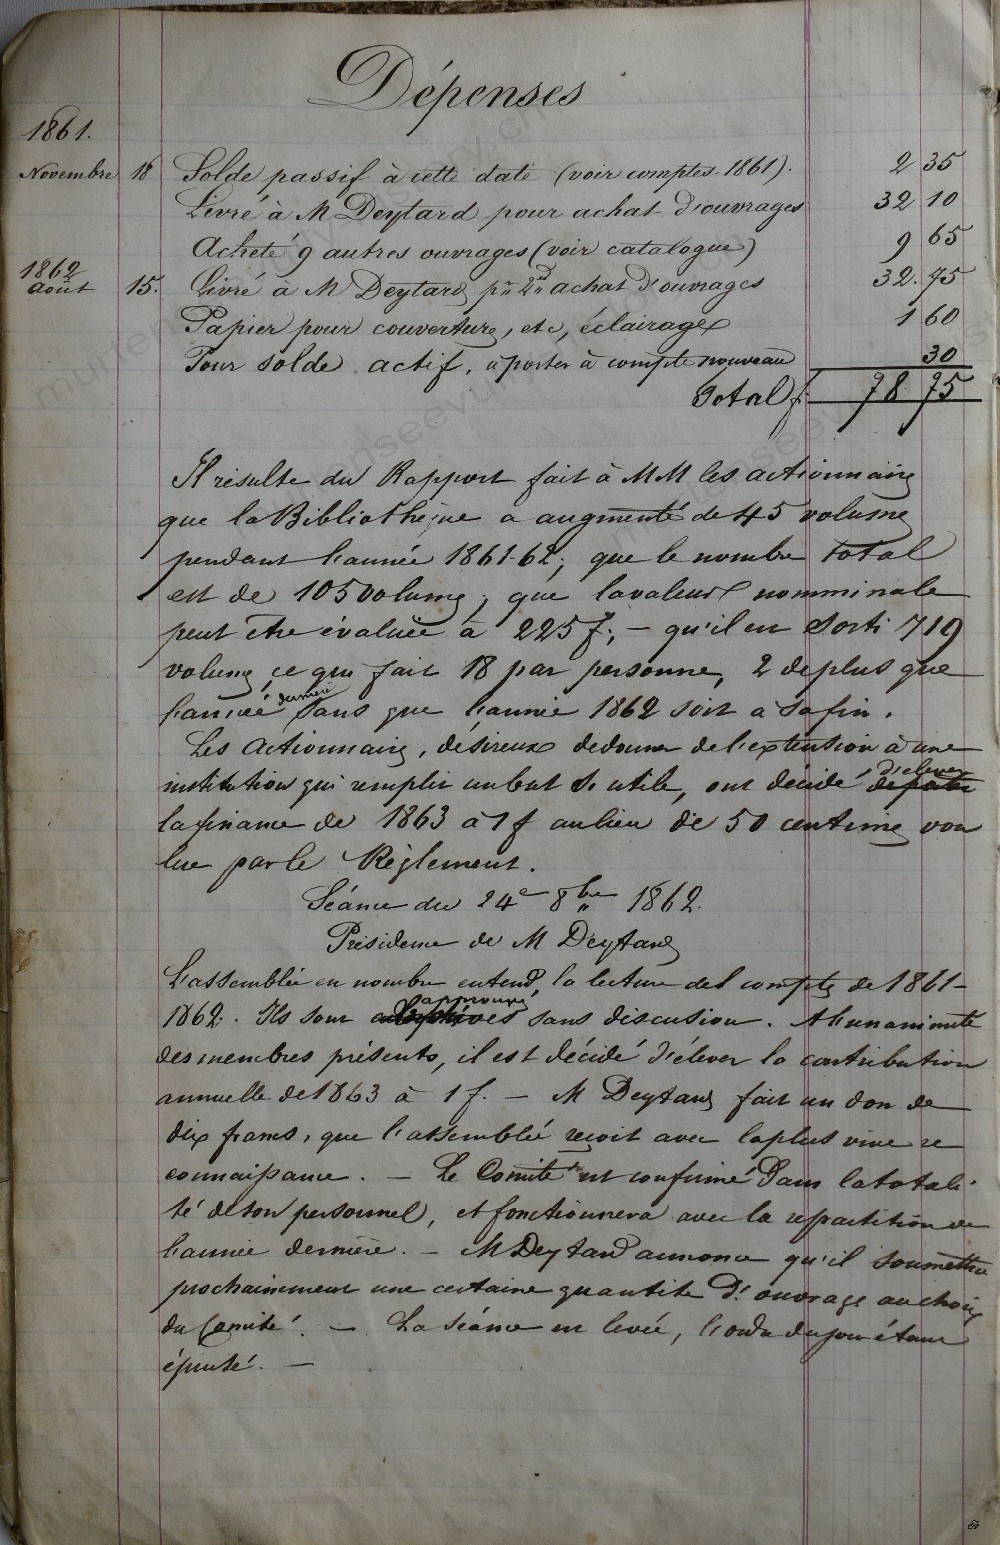 Dépenses
1861.
Novembre 18 Solde passif à cette date (voir comptes 1861). 2 35
Livré à M Deytard pour achat d'ouvrages 32 10
Acheté 9 autres ouvrages (voir catalogue) 9 65
1862
août 15. Livré à M Deytard pr 2d achat d'ouvrages 32.75
Papier pour couverture, etc, éclairage 1 60
Pour solde actif, à porter à compte nouveau 30
Total f. 78 75
Il résulte du Rapport fait à MM les actionnaires
que la Bibliothèque a augmenté de 45 volumes
pendant l'année 1861-62; que le nombre total
est de 105 volumes; que la valeur nomminale
peut être évaluée à 225 f; – qu'il en sorti 719
volumes ce qui fait 18 par personne, 2 de plus que
l'année dernière sans que l'année 1862 soit à sa fin.
Les Actionnaires, désireux de donner de l'extention à une
institution qui remplit un but si utile, ont décidé d'élever
la finance de 1863 à 1 f au lieu de 50 centimes vou
lue par le Règlement.
Séance du 24e 8bre 1862.
Présidence de M Deytard
L'assemblée en nombre entend la lecture des comptes de 1861-
1862. Ils sont approuvés sans discusion. A l'unanimité
des membres présents, il est décidé d'élever la contribution
annuelle de 1863 à 1 f. – M Deytard fait un don de
dix francs, que l'assemblée reçoit avec la plus vive re
connaissance. – Le Comité est confirmé dans la totali-
té de son personnel, et fonctionnera avec la repartition de
l'année dernière. – M Deytard annonce qu'il soumettra
prochainement une certaine quantité d'ouvrages au choix
du Comité. – La séance est levée, l'ordre du jour étant
épuisé. –